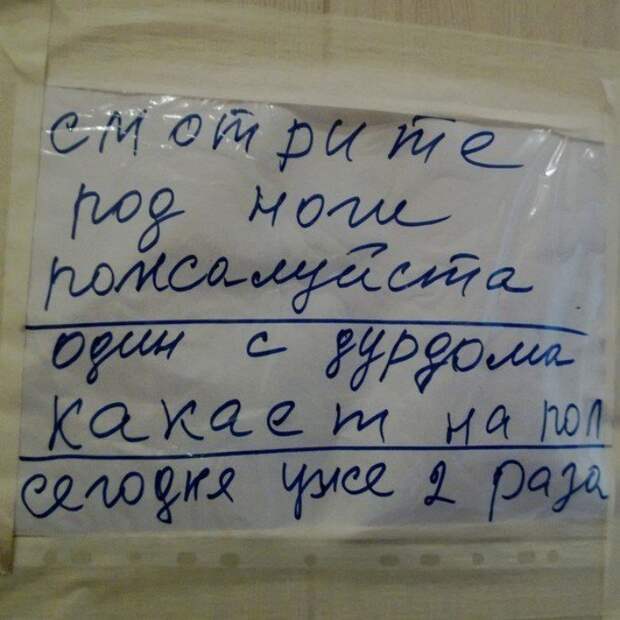 смотрите
под ноги
пожалуйста
один с дурдома
какает на пол
сегодня уже 2 раза